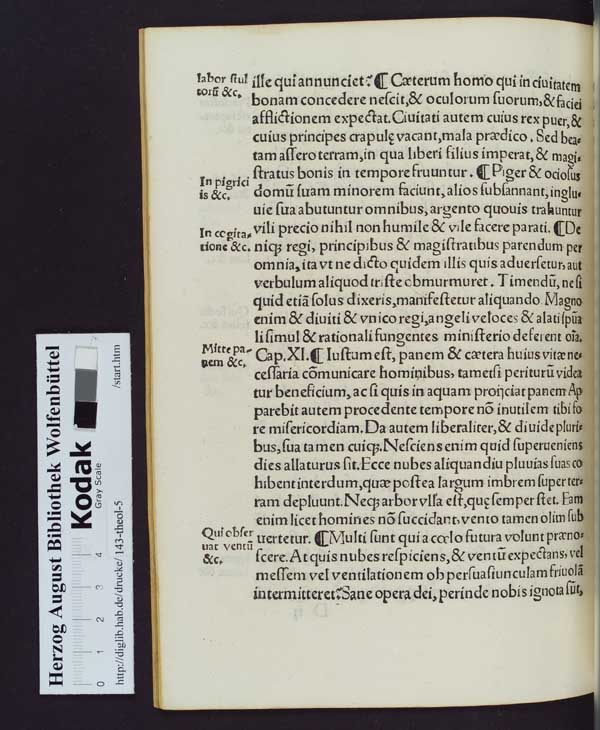 labor stul
torũ &c.
In pigrici
is &c.
In cogita-
tione &c.
Mitte pa-
nem &c.
Qui obser
uat ventũ
&c.
ille qui annunciet? ¶ Cæterum homo qui in ciuitatem
bonam concedere nescit, & oculorum suorum, & faciei
afflictionem expectat. Ciuitati autem cuius rex puer, &
cuius principes crapulę vacant, mala prædico. Sed bea-
tam assero terram, in qua liberi filius imperat, & magi-
stratus bonis in tempore fruuntur. ¶ Piger & ociosus
domũ suam minorem faciunt, alios subsannant, inglu-
uie sua abutuntur omnibus, argento quouis trahuntur
vili precio nihil non humile & vile facere parati. ¶ De
niqꝫ regi, principibus & magistratibus parendum per
omnia, ita vt ne dicto quidem illis quis aduersetur, aut
verbulum aliquod triste obmurmuret. Timendũ, ne si
quid etiã solus dixeris, manifestetur aliquando. Magno
enim & diuiti & vnico regi, angeli veloces & alati spũa
li simul & rationali fungentes ministerio deferent oĩa.
Cap. XI. ¶ Iustum est, panem & cætera huius vitæ ne-
cessaria cõmunicare hominibus, tametsi periturũ videa
tur beneficium, ac si quis in aquam proijciat panem Ap
parebit autem procedente tempore nõ inutilem tibi fo
re misericordiam. Da autem liberaliter, & diuide pluri-
bus, sua tamen cuiqꝫ. Nesciens enim quid superueniens
dies allaturus sit. Ecce nubes aliquandiu pluuias suas co
hibent interdum, quæ postea largum imbrem super ter-
ram depluunt. Neqꝫ arbor vlla est, quę semper stet. Eam
enim licet homines nõ succidant, vento tamen olim sub
uertetur. ¶ Multi sunt qui a cœlo futura volunt præno-
scere. At quis nubes respiciens, & ventũ expectans, vel
messem vel ventilationem ob persuasiunculam friuolã
intermitteret? Sane opera dei, perinde nobis ignota sũt,
Herzog August Bibliothek Wolfenbüttel
Kodak
Gray Scale
0 1 2 3 4
http://diglib.hab.de/drucke/143-theol-5
/start.htm